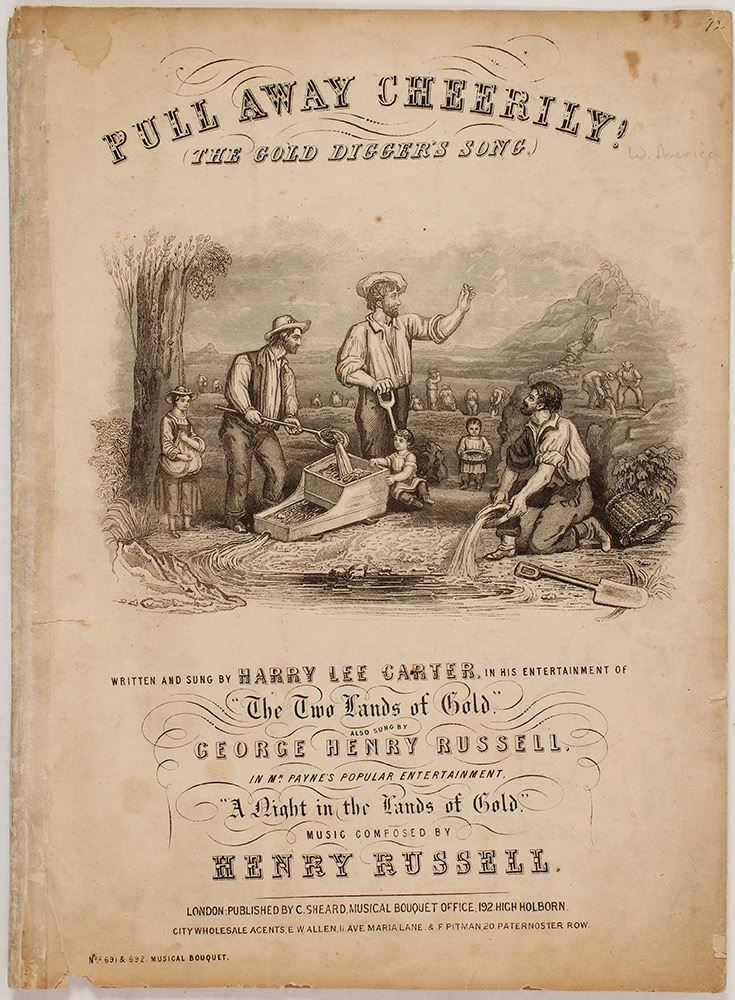 92
PULL AWAY CHEERILY!
(THE GOLD DIGGER'S SONG.)
W. America
WRITTEN AND SUNG BY HARRY LEE CARTER, IN HIS ENTERTAINMENT OF
"The Two Lands of Gold."
ALSO SUNG BY
GEORGE HENRY RUSSELL,
IN MR. PAYNE'S POPULAR ENTERTAINMENT,
"A Night in the Lands of Gold."
MUSIC COMPOSED BY
HENRY RUSSELL.
LONDON: PUBLISHED BY C. SHEARD, MUSICAL BOUQUET OFFICE, 192, HIGH HOLBORN.
CITY WHOLESALE AGENTS, E. W. ALLEN, 11, AVE MARIA LANE. & F. PITMAN, 20, PATERNOSTER ROW.
Nos. 691 & 692. MUSICAL BOUQUET.